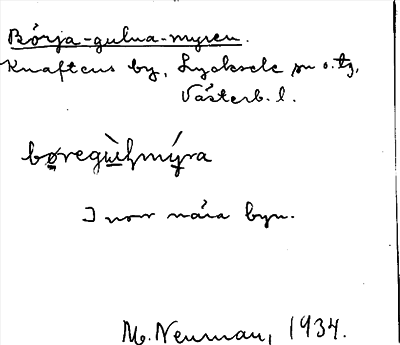 Börja-gulua-myren.
Knaftens by, Lycksele sn o. tg,
Västerb. l.
I norr nära byn.
M. Neuman, 1934.